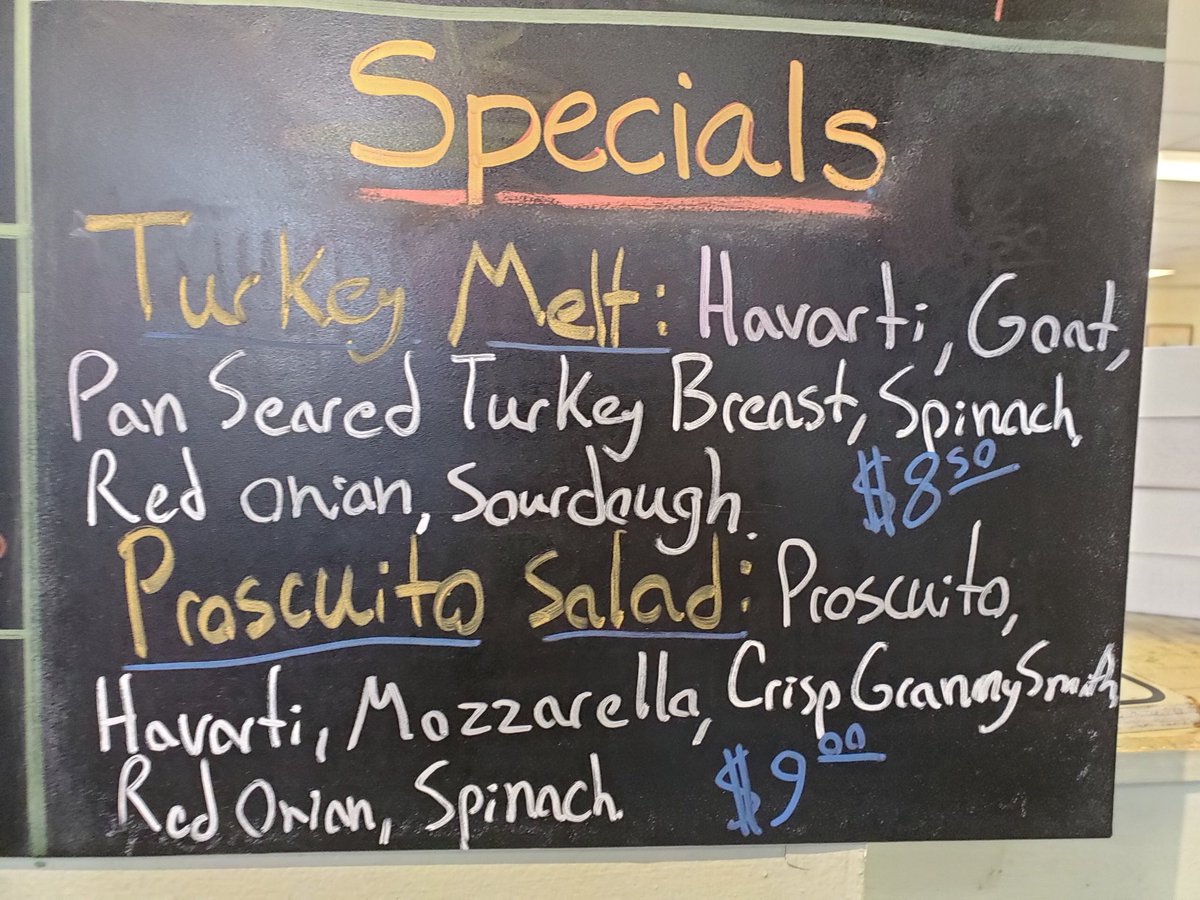 Specials
Turkey Melt: Havarti, Goat,
Pan Seared Turkey Breast, Spinach,
Red Onion, Sourdough. $8.50
Proscuito Salad: Proscuito,
Havarti, Mozzarella, Crisp Granny Smith,
Red Onion, Spinach. $9.00